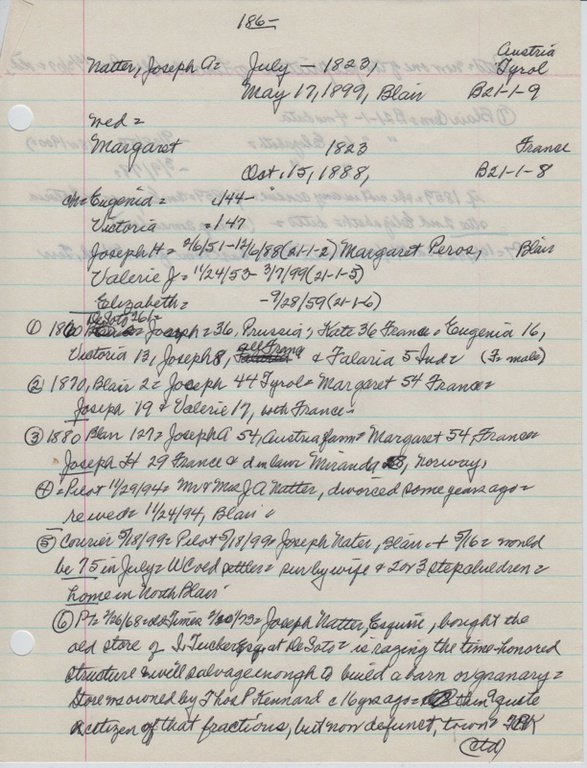 186-
Austria
Natter, Joseph A= July - 1823, Tyrol
May 17, 1899, Blair B21-1-9
wed=
Margaret 1823 France
Oct. 15, 1888, B21-1-8
ch= Eugenia= c/44-
Victoria = c/47
Joseph H= 2/6/51-12/6/88 (21-1-2) Margaret Peros, Blair
Valerie J= 1/24/53- 3/7/99 (21-1-5)
Elizabeth= -9/28/59 (21-1-6)
DeSoto 261=
① 1860 Joseph= 36, Prussia; Kate 36 France= Eugenia 16,
Victoria 13, Joseph 8, all France & Falaria 5 Ind= (F= male)
② 1870, Blair 2= Joseph 44 Tyrol= Margaret 54 France=
Joseph 19 & Valerie 17, both France=
③ 1880 Blair 127= Joseph A 54, Austria farm= Margaret 54, France=
Joseph H 29 France & d in law Miranda 28, Norway,
④= Pilot 11/29/94= Mr & Mrs J A Natter, divorced some years ago=
rewed= 11/24/94, Blair=
⑤ Courier 5/18/99= Pilot 5/18/99= Joseph Nater, Blair= + 5/16= would
be 75 in July= WC old settler= sur by wife & 2 or 3 stepchildren=
home in North Blair
⑥ 2/26/68= Times Joseph Natter, Esquire, bought the
old store of Tucker Esq at DeSoto= is razing the time-honored
structure & will salvage enough to build a barn or granary=
Store was owned by Thos P Kennard c 16 yrs ago= quite
a citizen of that fractious, but now defunct, town=
(ctd)